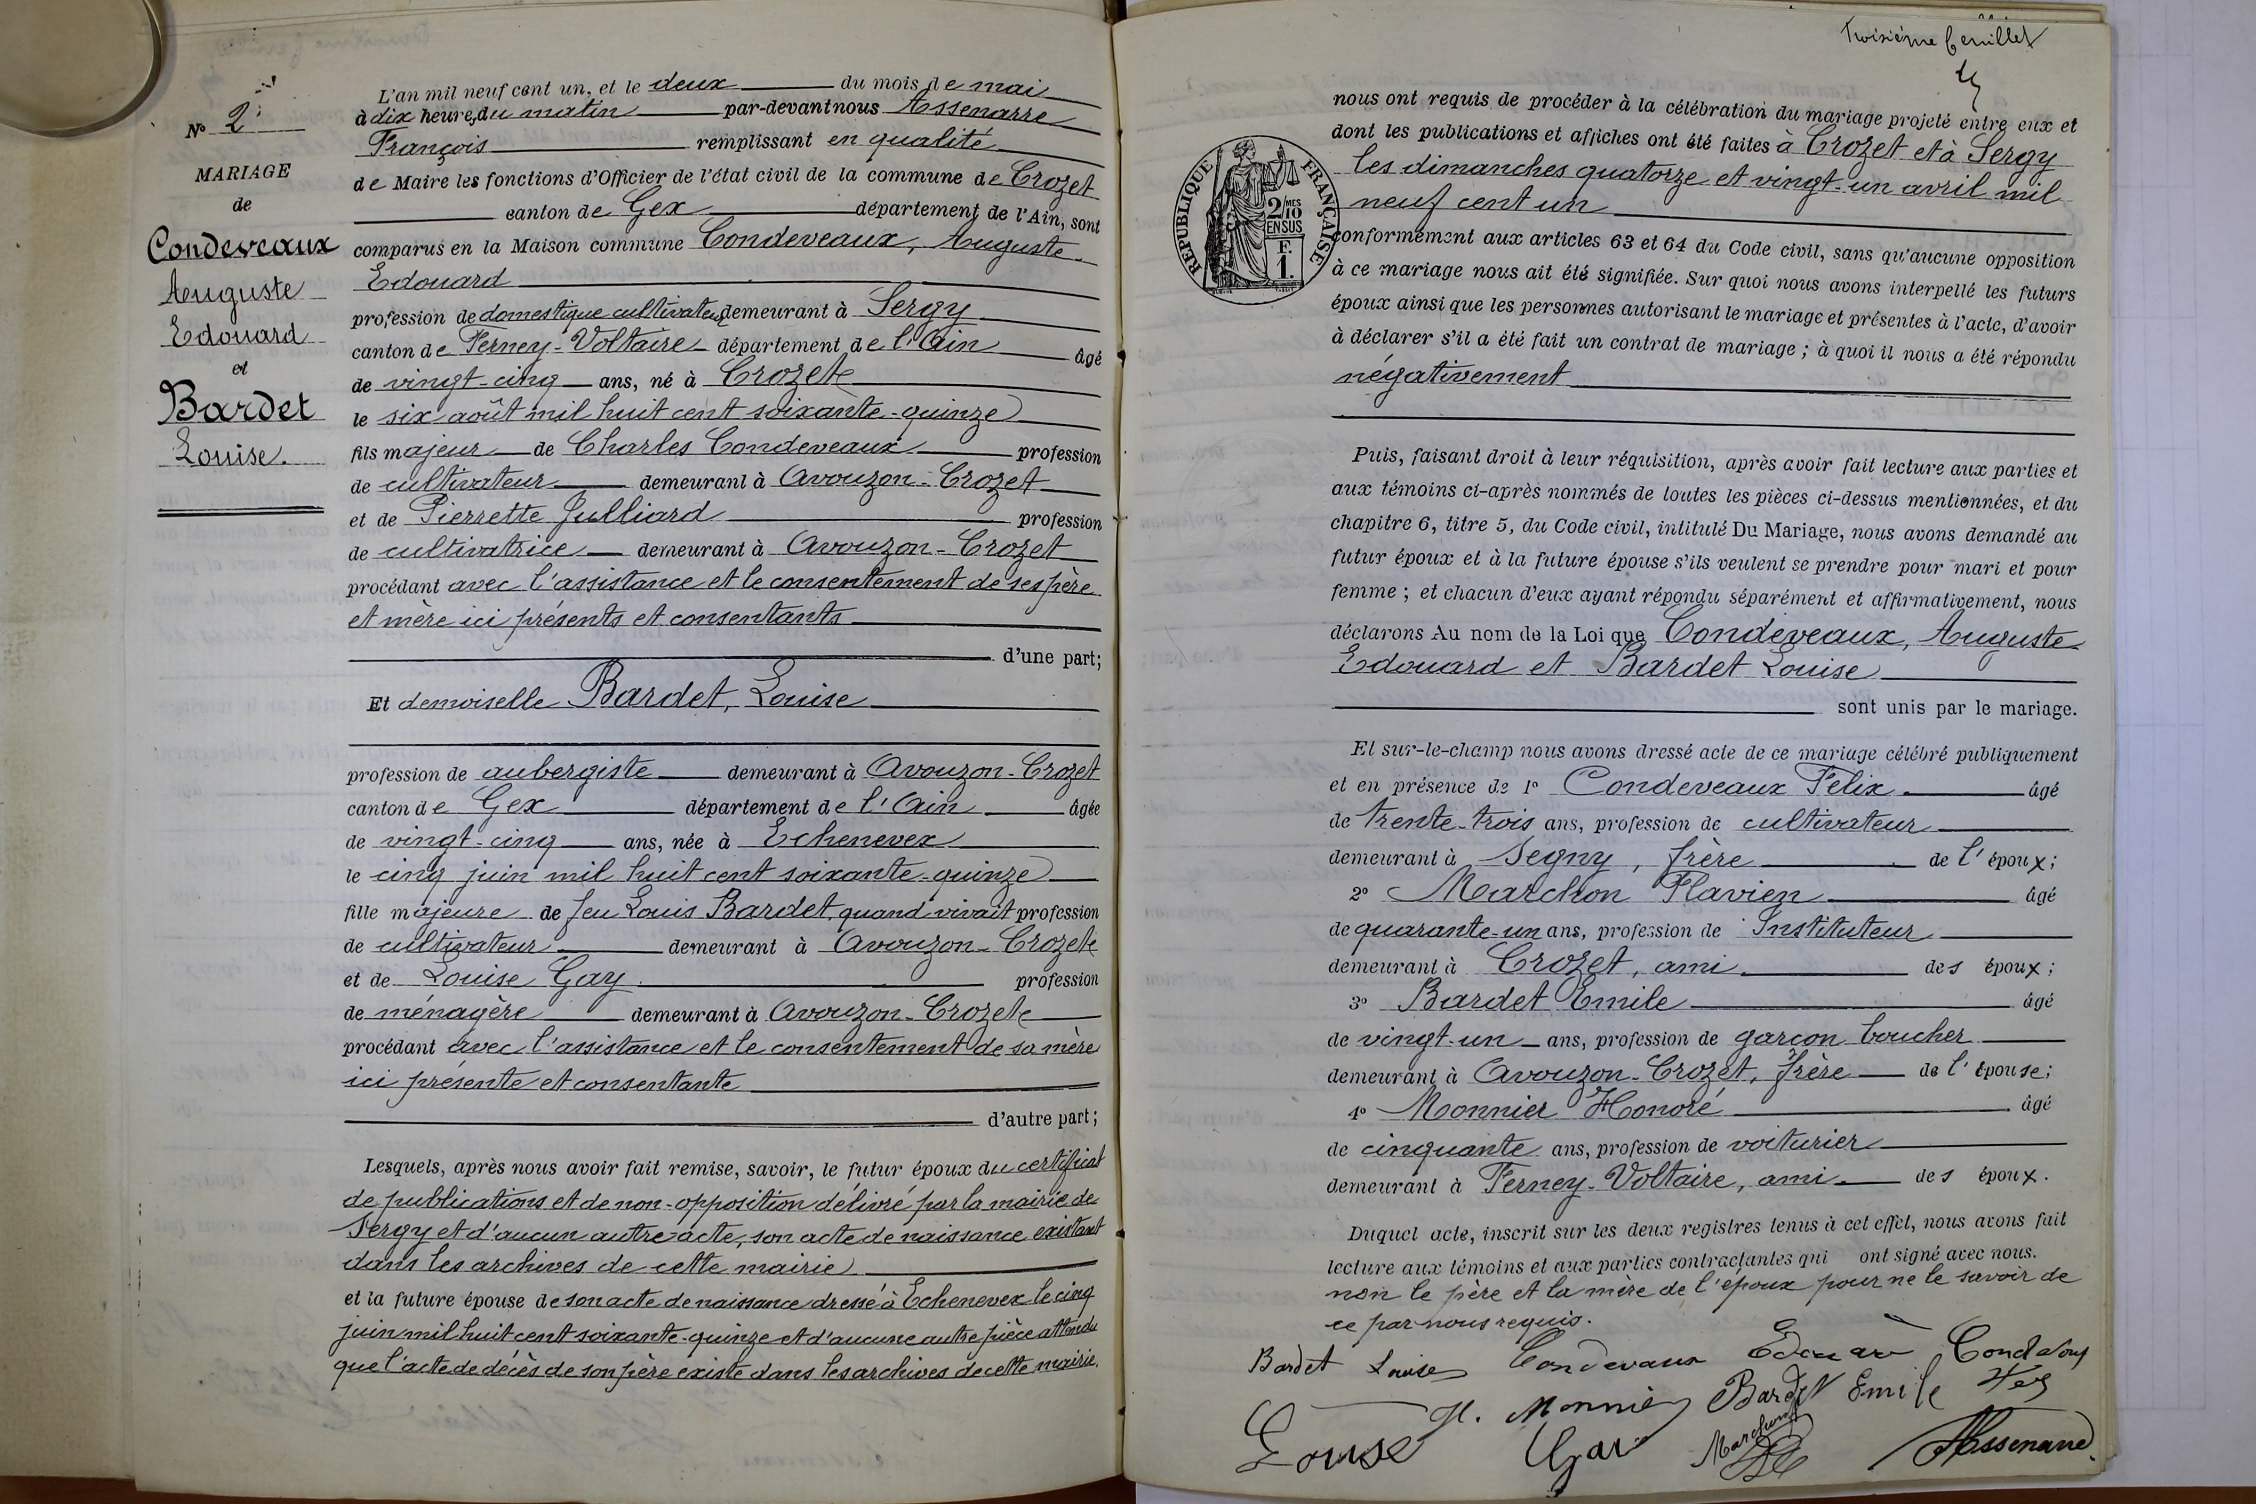 N° 2
MARIAGE
de
Condeveaux
Auguste
Edouard
et
Bardet
Louise.
L'an mil neuf cent un, et le deux du mois de mai
à dix heures du matin par-devant nous Assenarre
François remplissant en qualité
de Maire les fonctions d'Officier de l'état civil de la commune de Crozet
canton de Gex département de l'Ain, sont
comparus en la Maison commune Condeveaux, Auguste
Edouard
profession de domestique cultivateur demeurant à Sergy
canton de Ferney-Voltaire département de l'Ain âgé
de vingt-cinq ans, né à Crozet
le six août mil huit cent soixante-quinze
fils majeur de Charles Condeveaux profession
de cultivateur demeurant à Avouzon-Crozet
et de Pierrette Julliard profession
de cultivatrice demeurant à Avouzon-Crozet
procédant avec l'assistance et le consentement de ses père
et mère ici présents et consentants
d'une part;
Et demoiselle Bardet, Louise
profession de aubergiste demeurant à Avouzon-Crozet
canton de Gex département de l'Ain âgée
de vingt-cinq ans, née à Echenevex
le cinq juin mil huit cent soixante-quinze
fille majeure de feu Louis Bardet, quand vivait profession
de cultivateur demeurant à Avouzon-Crozet
et de Louise Gay profession
de ménagère demeurant à Avouzon-Crozet
procédant avec l'assistance et le consentement de sa mère
ici présente et consentante
d'autre part;
Lesquels, après nous avoir fait remise, savoir, le futur époux du certificat
de publications et de non-opposition délivré par la mairie de
Sergy et d'aucun autre acte, son acte de naissance existant
dans les archives de cette mairie
et la future épouse de son acte de naissance dressé à Echenevex le cinq
juin mil huit cent soixante-quinze et d'aucune autre pièce attendu
que l'acte de décès de son père existe dans les archives de cette mairie.
Troisième feuillet
nous ont requis de procéder à la célébration du mariage projeté entre eux et
dont les publications et affiches ont été faites à Crozet et à Sergy
les dimanches quatorze et vingt-un avril mil
neuf cent un
RÉPUBLIQUE FRANÇAISE
2/10 MES
EN SUS
F.
1.
conformément aux articles 63 et 64 du Code civil, sans qu'aucune opposition
à ce mariage nous ait été signifiée. Sur quoi nous avons interpellé les futurs
époux ainsi que les personnes autorisant le mariage et présentes à l'acte, d'avoir
à déclarer s'il a été fait un contrat de mariage ; à quoi il nous a été répondu
négativement
Puis, faisant droit à leur réquisition, après avoir fait lecture aux parties et
aux témoins ci-après nommés de toutes les pièces ci-dessus mentionnées, et du
chapitre 6, titre 5, du Code civil, intitulé Du Mariage, nous avons demandé au
futur époux et à la future épouse s'ils veulent se prendre pour mari et pour
femme ; et chacun d'eux ayant répondu séparément et affirmativement, nous
déclarons Au nom de la Loi que Condeveaux, Auguste
Edouard et Bardet Louise
sont unis par le mariage.
Et sur-le-champ nous avons dressé acte de ce mariage célébré publiquement
et en présence de 1° Condeveaux Felix âgé
de trente-trois ans, profession de cultivateur
demeurant à Segny, frère de l'époux;
2° Marchon Flavien âgé
de quarante-un ans, profession de Instituteur
demeurant à Crozet, ami des époux;
3° Bardet Emile âgé
de vingt-un ans, profession de garçon boucher
demeurant à Avouzon-Crozet, frère de l'épouse;
4° Monnier Honoré âgé
de cinquante ans, profession de voiturier
demeurant à Ferney-Voltaire, ami des époux.
Duquel acte, inscrit sur les deux registres tenus à cet effet, nous avons fait
lecture aux témoins et aux parties contractantes qui ont signé avec nous.
non le père et la mère de l'époux pour ne le savoir de
ce par nous requis.
Bardet Louise Condevaux Edouard
H. Monnier Bardet Emile
Louise Gay Marchon Assenarre